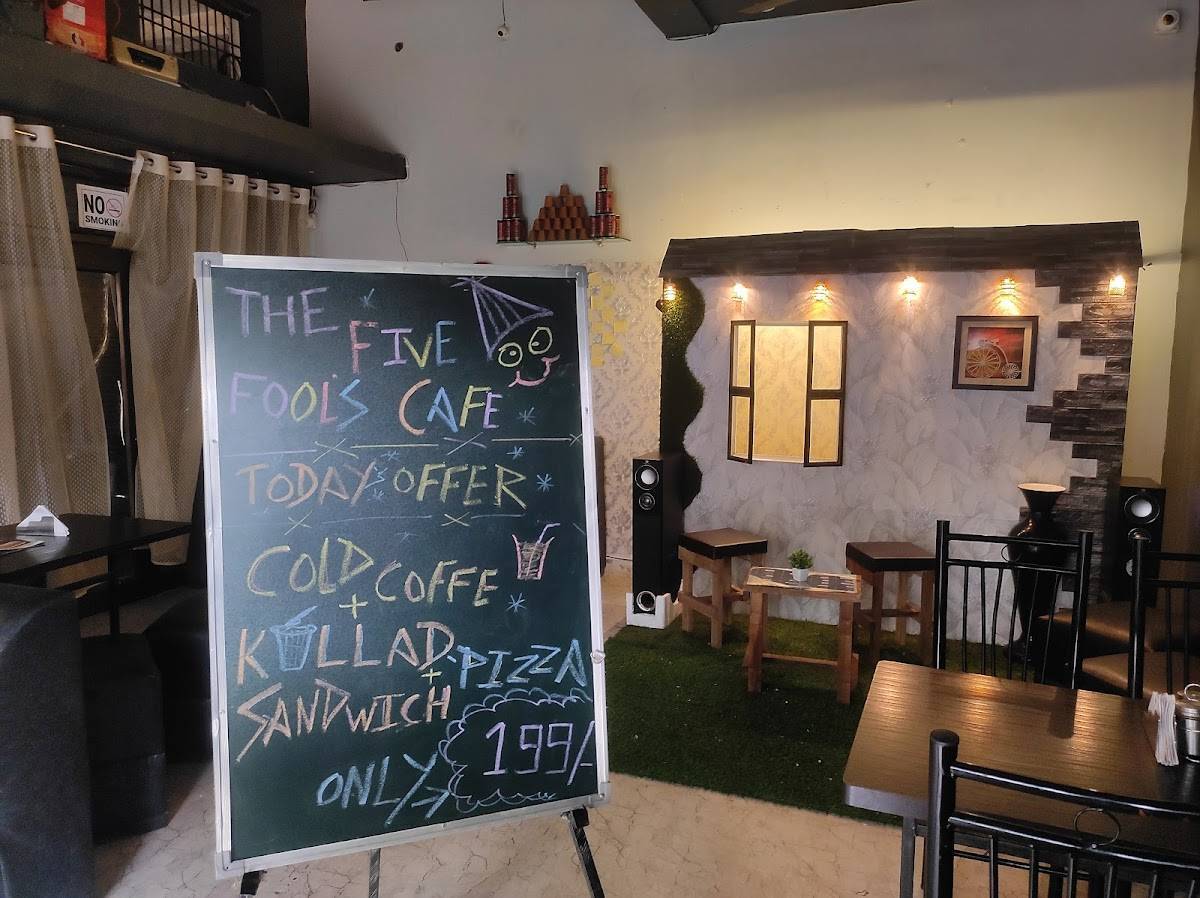 NO
SMOKING
THE
FIVE
FOOL'S CAFE
TODAY'S OFFER
COLD COFFE
+
KULLAD PIZZA
+
SANDWICH
ONLY 199/-